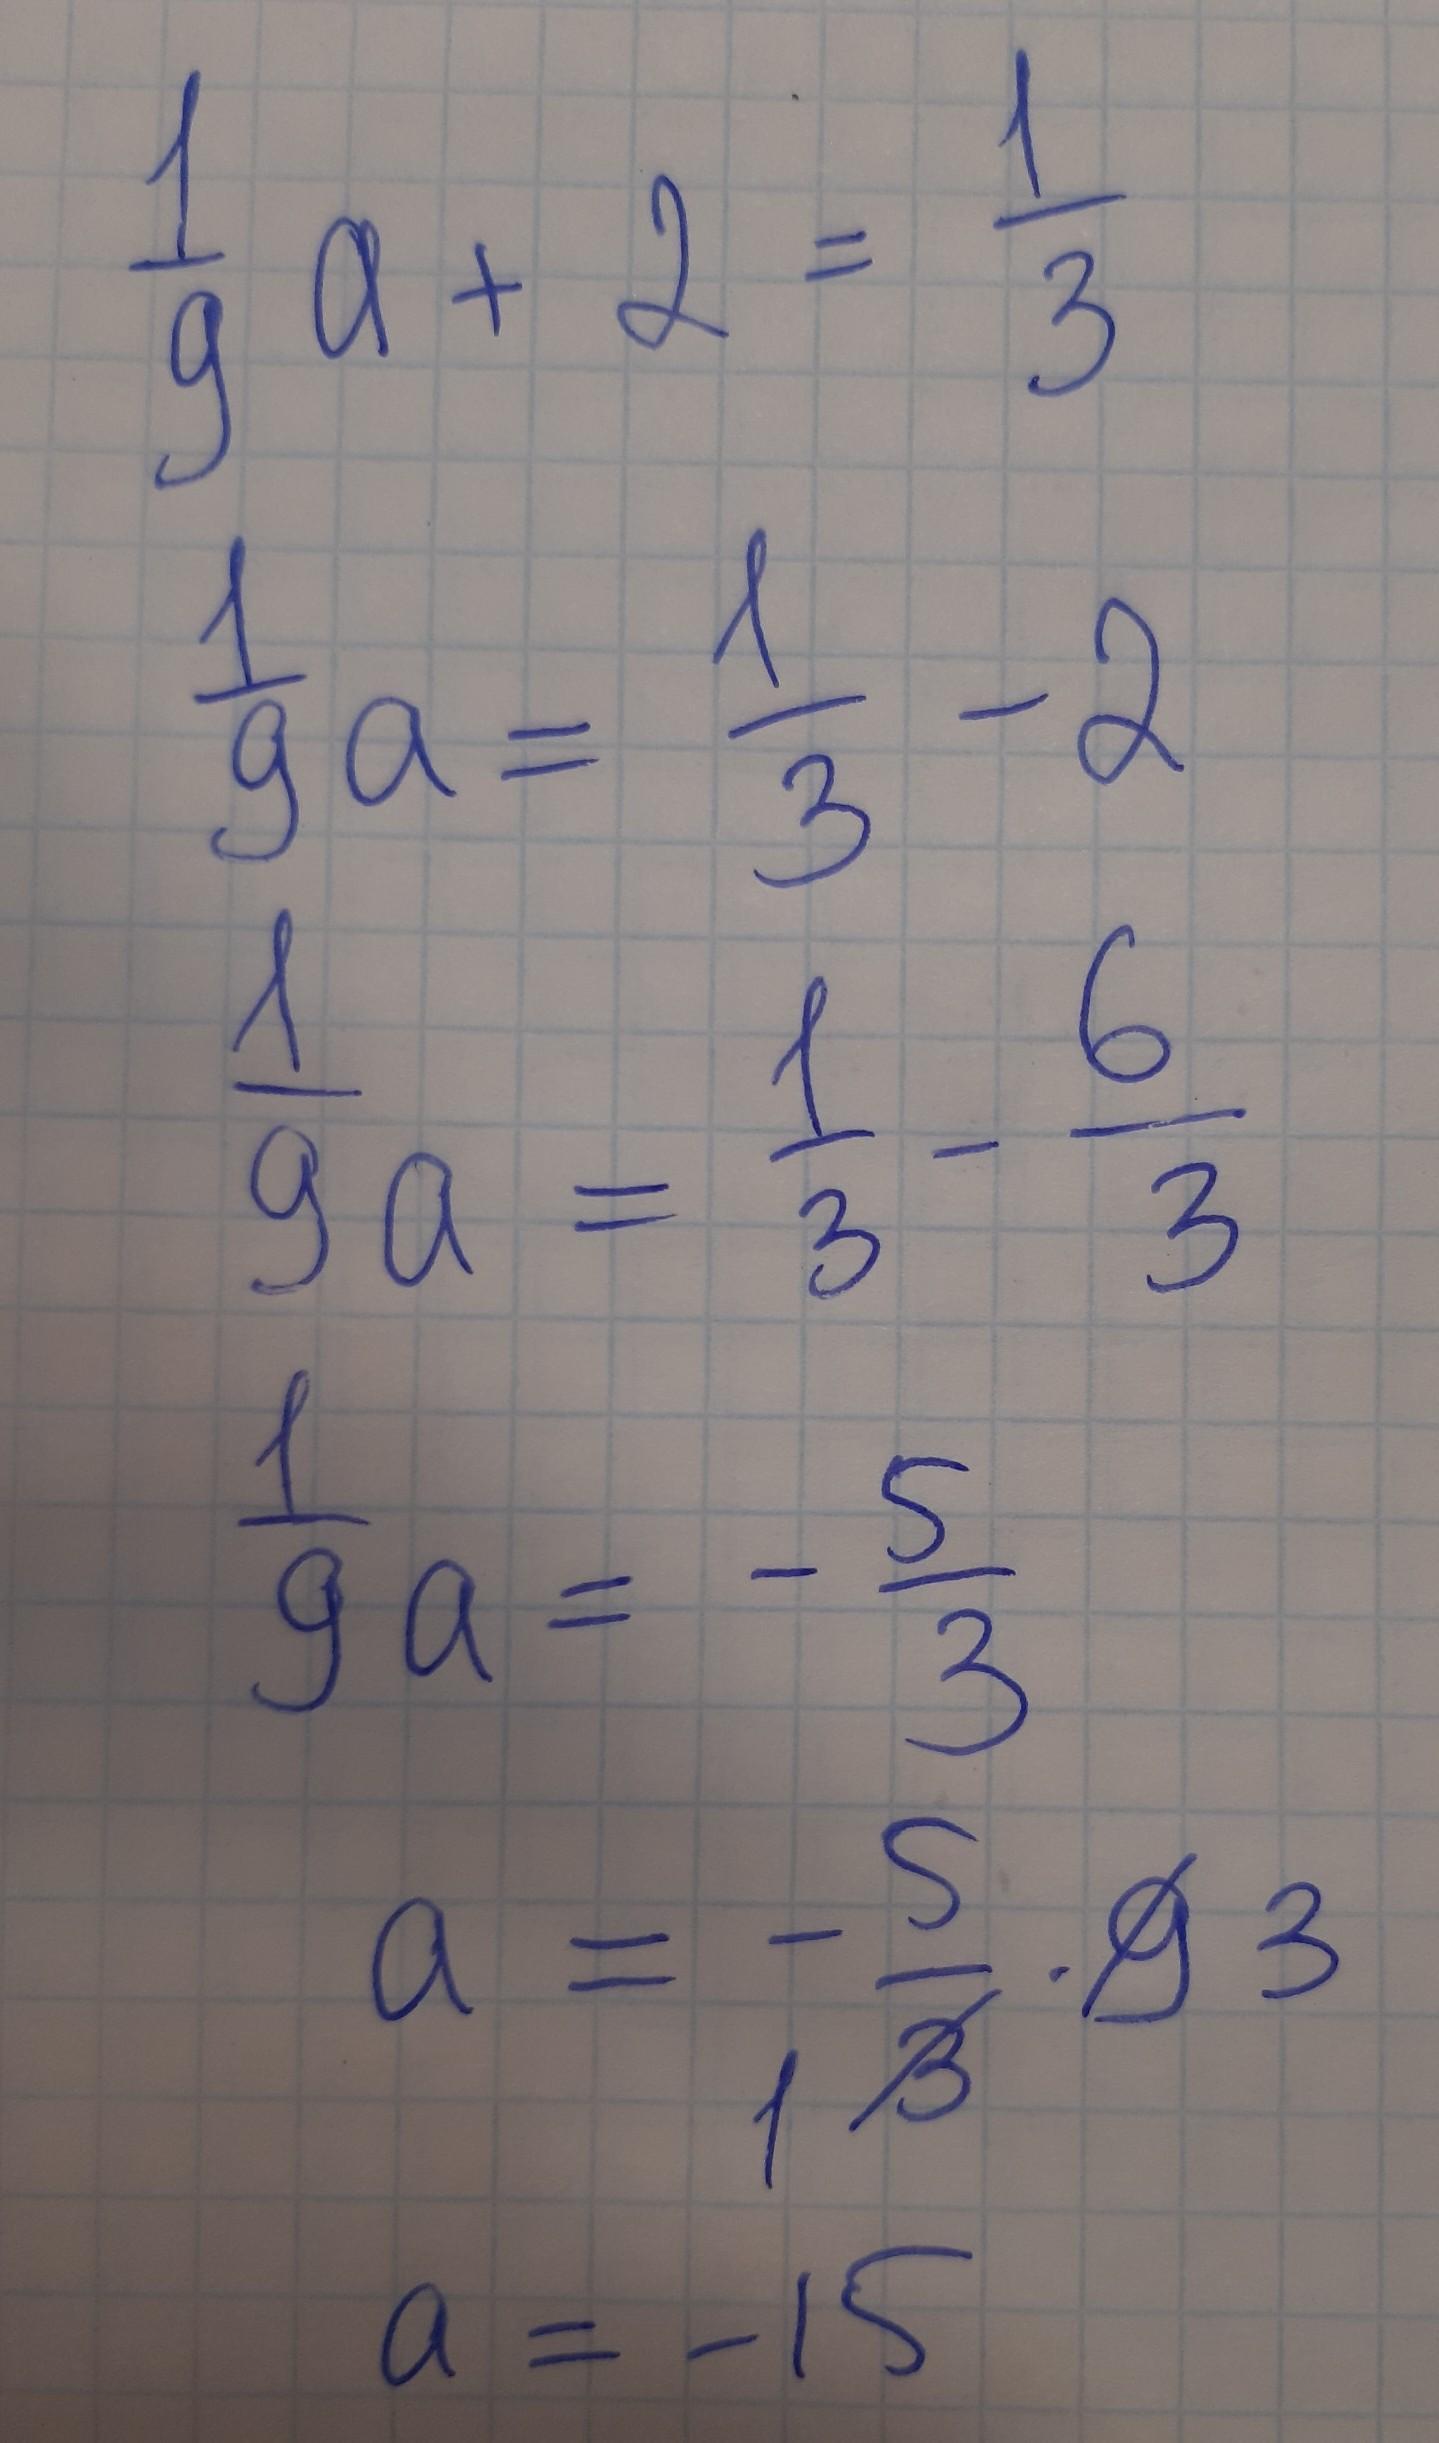 1/9 a + 2 = 1/3
1/9 a = 1/3 - 2
1/9 a = 1/3 - 6/3
1/9 a = - 5/3
a = - 5/3 1 · 9 3
a = -15